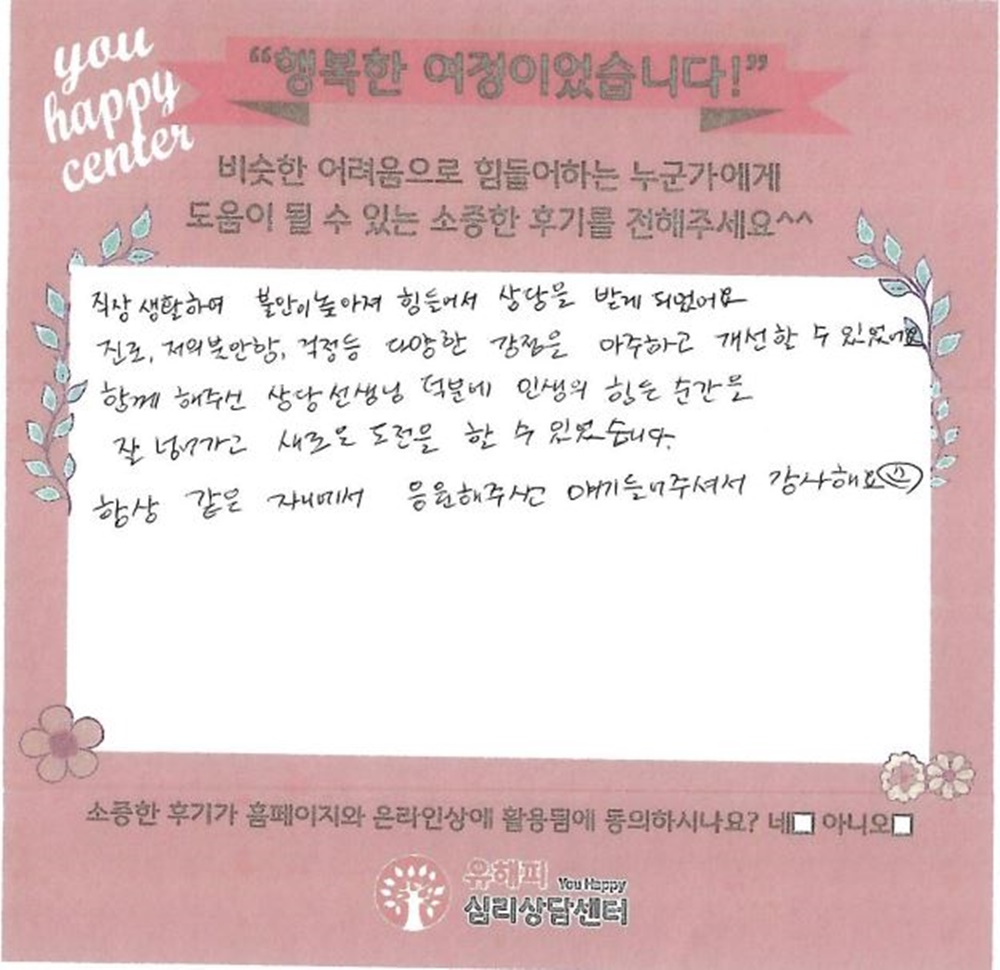 you
happy
center
“행복한 여정이었습니다!”
비슷한 어려움으로 힘들어하는 누군가에게
도움이 될 수 있는 소중한 후기를 전해주세요^^
직상생활하며 불안이높아져 힘들어서 상담을 받게 되었어요
진로, 저의불안함, 걱정등 다양한 감정을 마주하고 개선할 수 있었어요
함께 해주신 상담선생님 덕분에 인생의 힘든 순간을
잘 넘어가고 새로운 도전을 할 수 있었습니다.
항상 같은 자리에서 응원해주시고 얘기들어주셔서 감사해요
소중한 후기가 홈페이지와 온라인상에 활용됨에 동의하시나요? 네 아니오
유해피 You Happy
심리상담센터